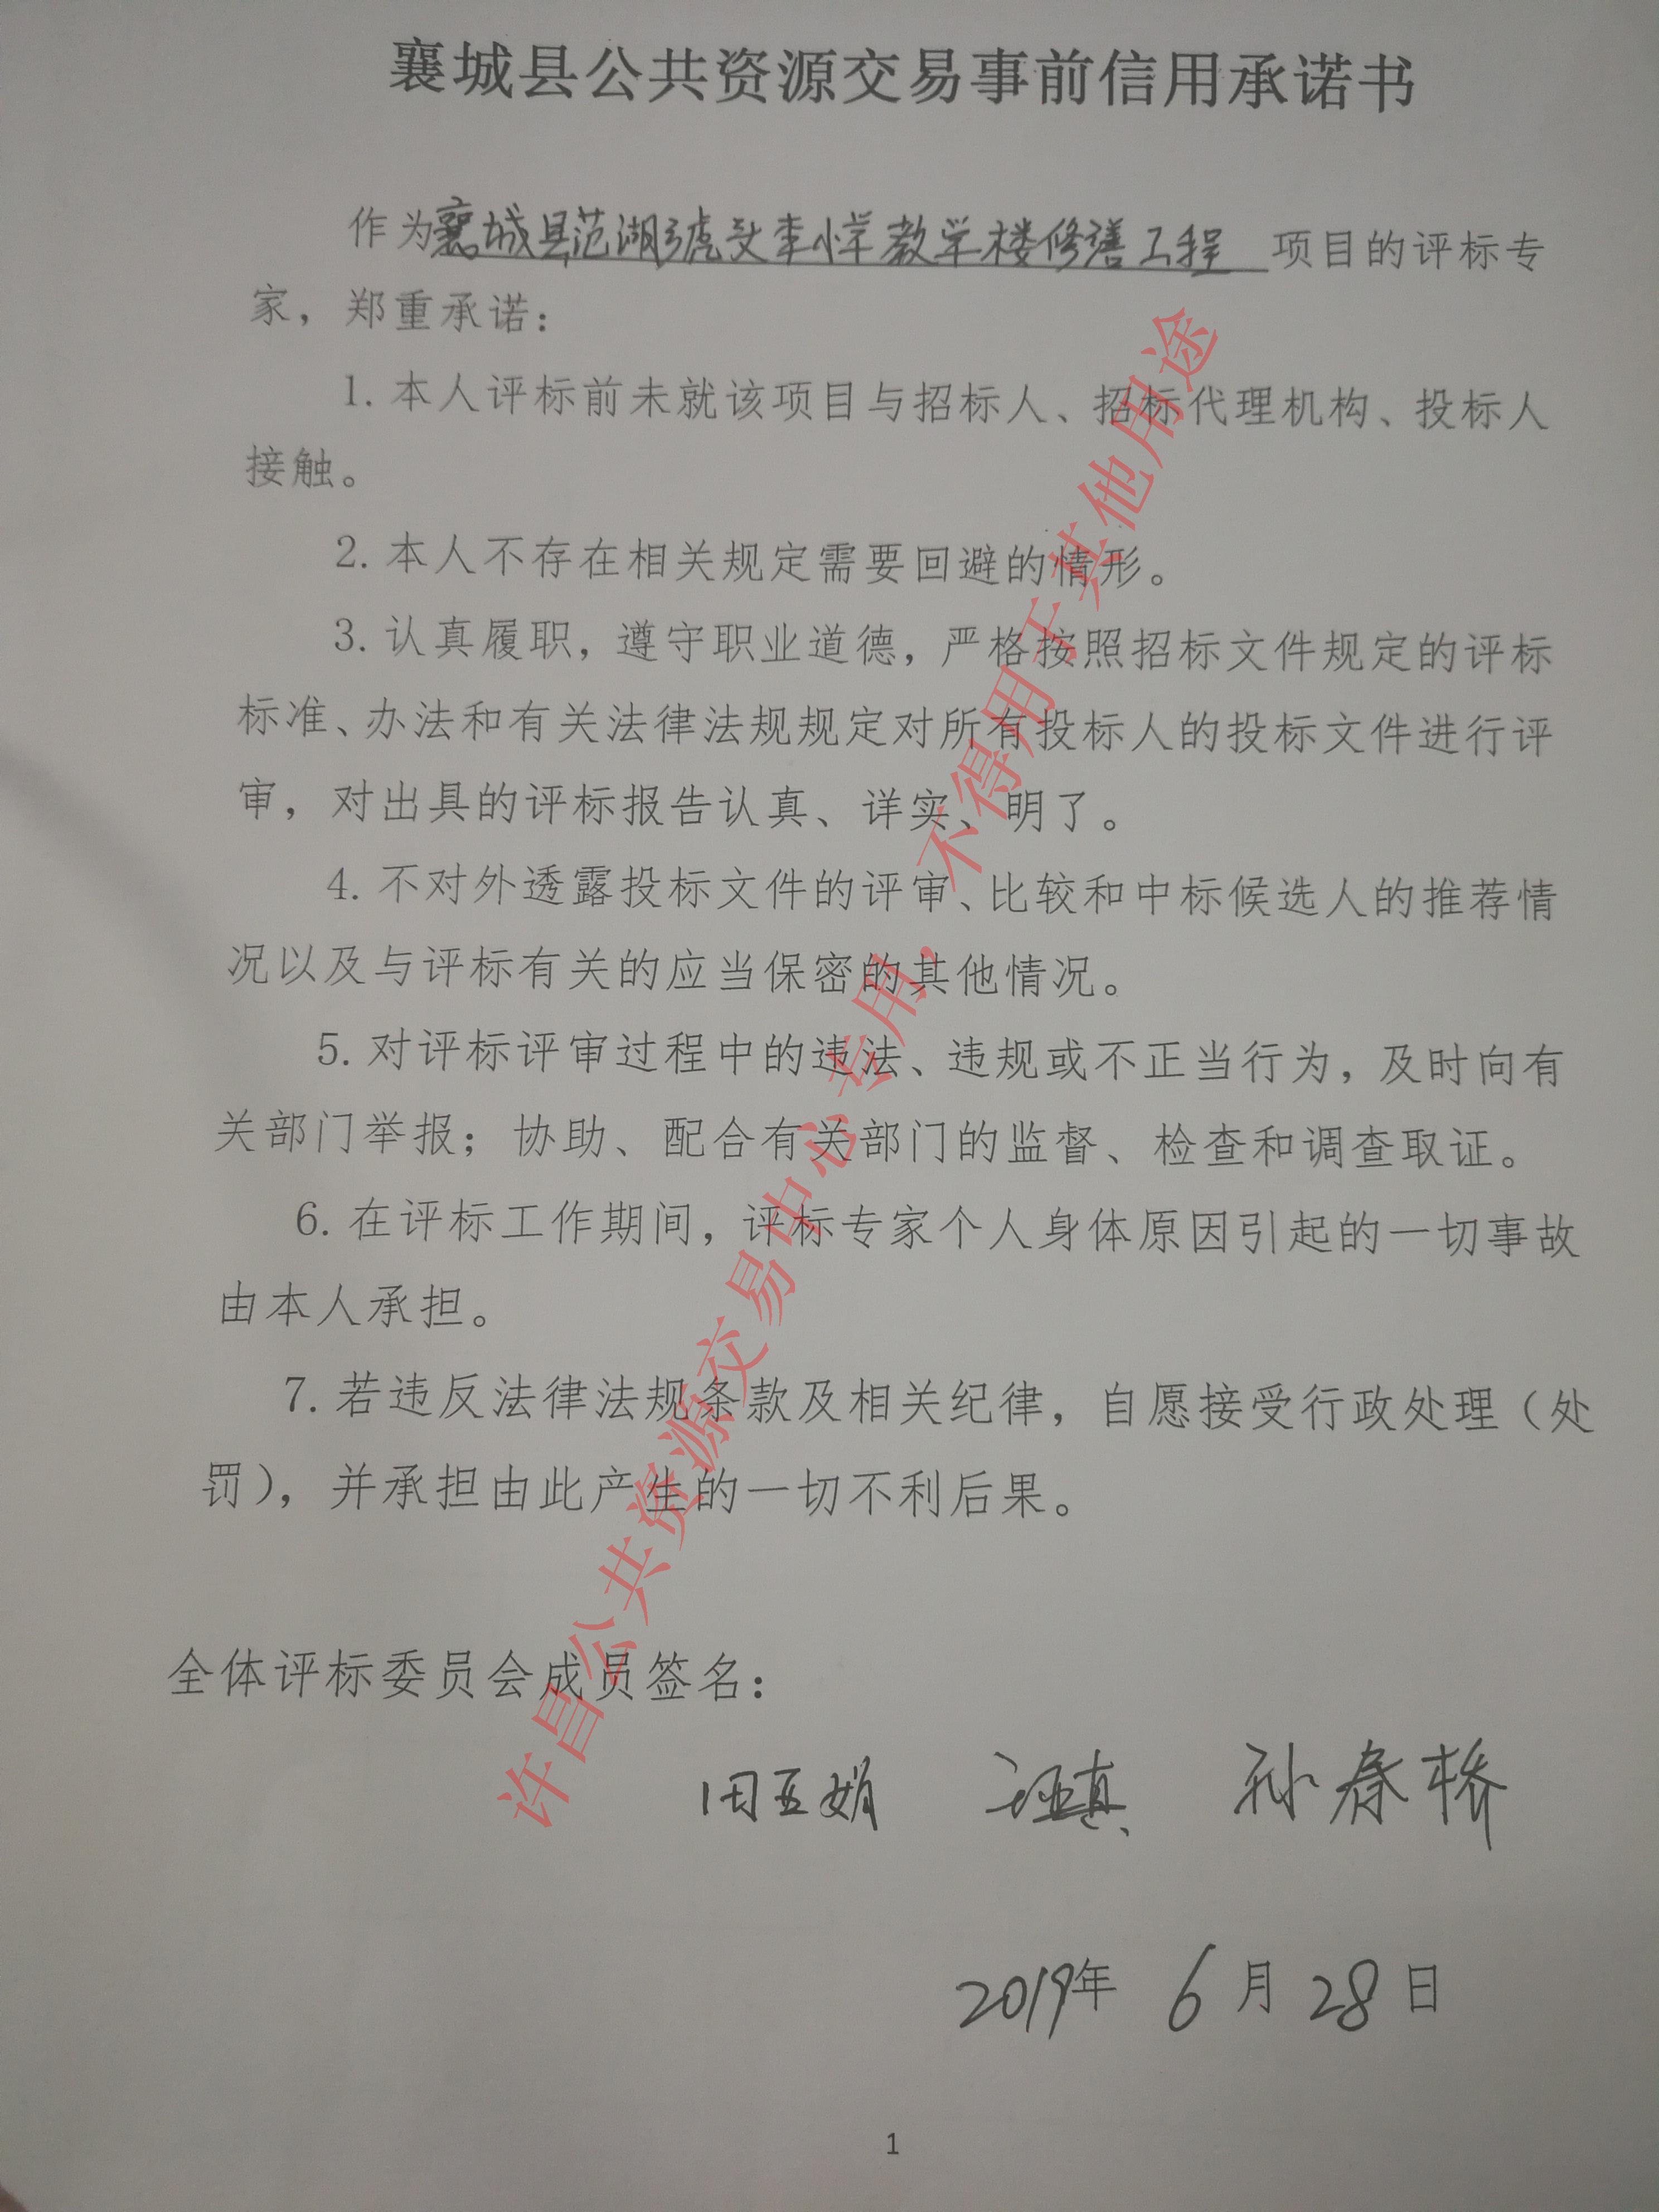 襄城县公共资源交易事前信用承诺书
作为襄城县范湖乡虎头李小学教学楼修缮工程 项目的评标专
家，郑重承诺：
1. 本人评标前未就该项目与招标人、招标代理机构、投标人
接触。
2. 本人不存在相关规定需要回避的情形。
3. 认真履职，遵守职业道德，严格按照招标文件规定的评标
标准、办法和有关法律法规规定对所有投标人的投标文件进行评
审，对出具的评标报告认真、详实、明了。
4. 不对外透露投标文件的评审、比较和中标候选人的推荐情
况以及与评标有关的应当保密的其他情况。
5. 对评标评审过程中的违法、违规或不正当行为，及时向有
关部门举报；协助、配合有关部门的监督、检查和调查取证。
6. 在评标工作期间，评标专家个人身体原因引起的一切事故
由本人承担。
7. 若违反法律法规条款及相关纪律，自愿接受行政处理（处
罚），并承担由此产生的一切不利后果。
全体评标委员会成员签名：
田亚娟 孙春桥
2019年 6月28日
1
许昌公共资源交易中心专用，不得用于其他用途